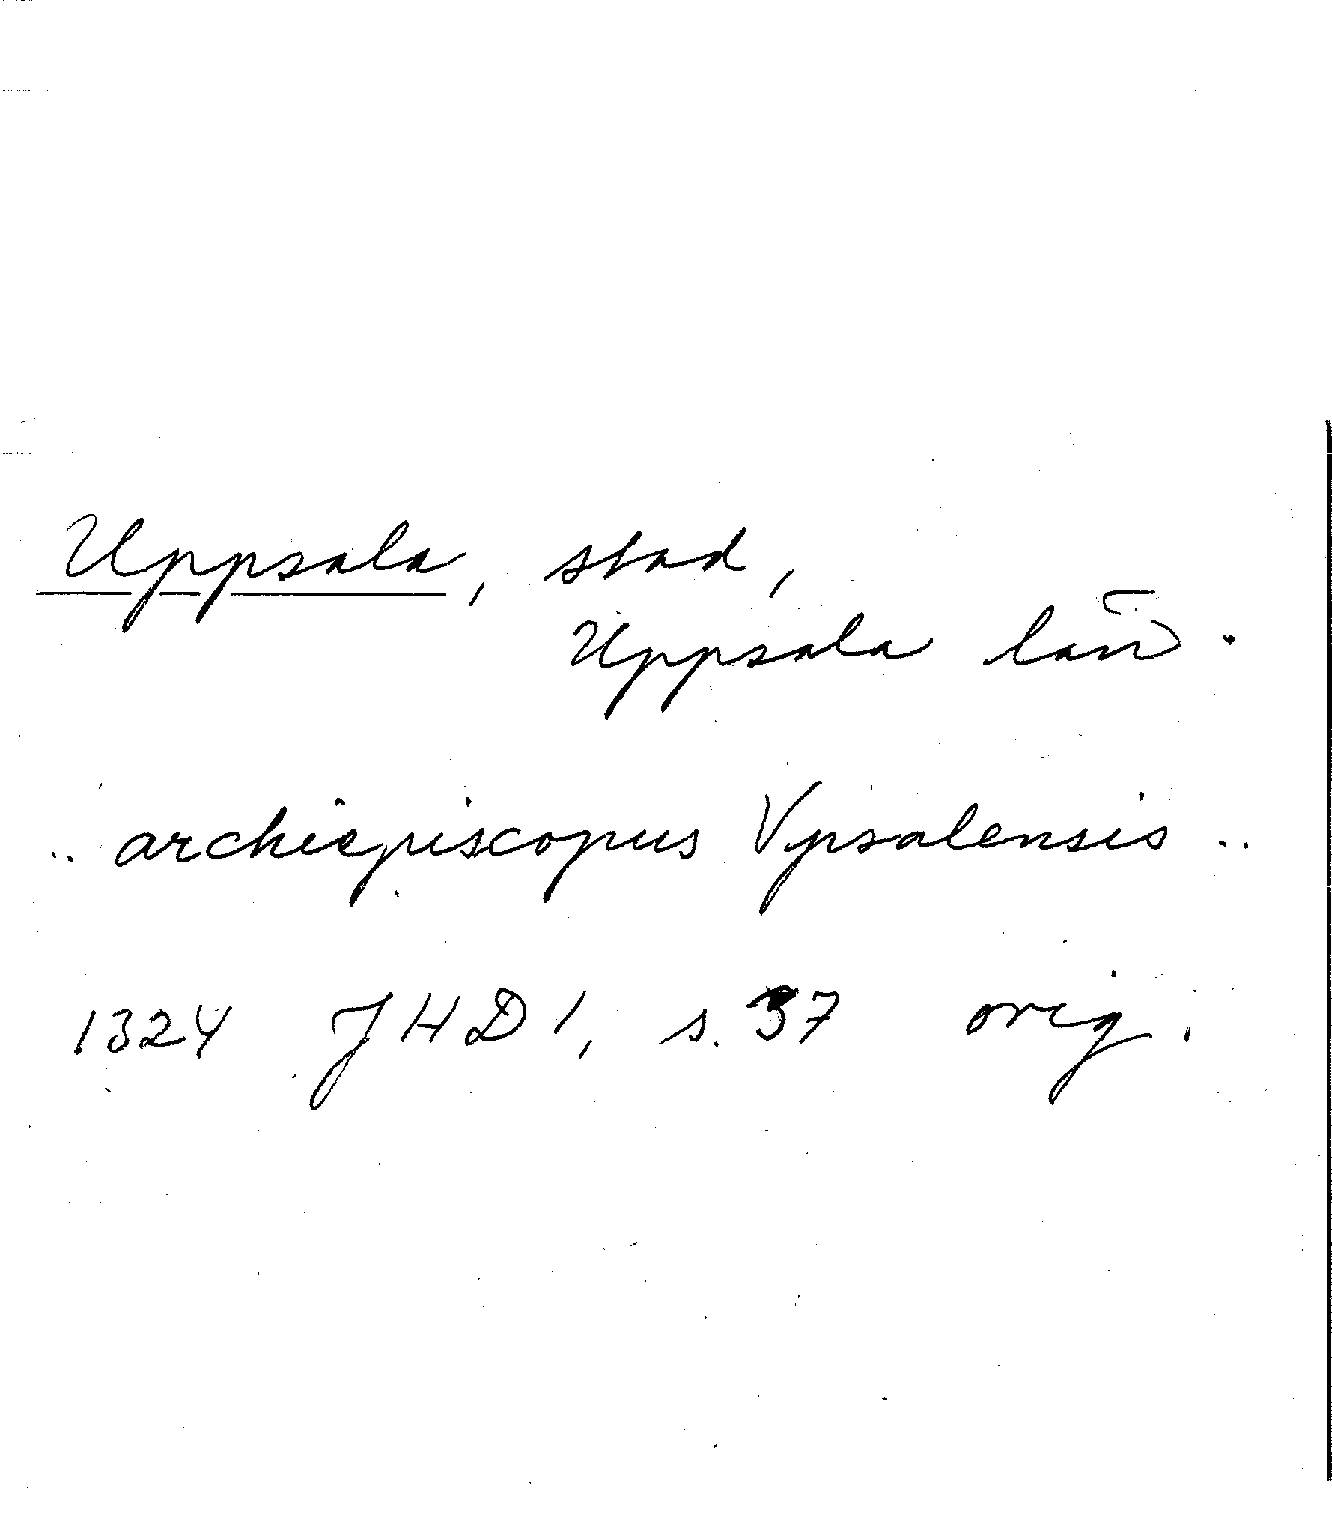 Uppsala, stad,
Uppsala län.
.. archiepiscopus Vpsalensis ..
1324 JHD 1, s. 37 orig.